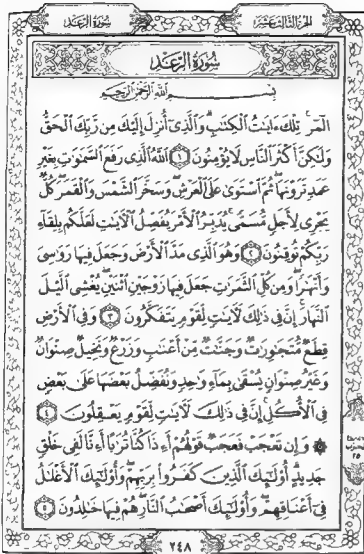 الجزء الثالث عشر
سورة الرعد
سورة الرعد
بسم الله الرحمن الرحيم
الٓمٓر تِلْكَ ءَايَٰتُ ٱلْكِتَٰبِ وَٱلَّذِىٓ أُنزِلَ إِلَيْكَ مِن رَّبِّكَ ٱلْحَقُّ
وَلَٰكِنَّ أَكْثَرَ ٱلنَّاسِ لَا يُؤْمِنُونَ ١ ٱللَّهُ ٱلَّذِى رَفَعَ ٱلسَّمَٰوَٰتِ بِغَيْرِ
عَمَدٍ تَرَوْنَهَا ثُمَّ ٱسْتَوَىٰ عَلَى ٱلْعَرْشِ وَسَخَّرَ ٱلشَّمْسَ وَٱلْقَمَرَ كُلٌّ
يَجْرِى لِأَجَلٍ مُّسَمًّى يُدَبِّرُ ٱلْأَمْرَ يُفَصِّلُ ٱلْءَايَٰتِ لَعَلَّكُم بِلِقَآءِ
رَبِّكُمْ تُوقِنُونَ ٢ وَهُوَ ٱلَّذِى مَدَّ ٱلْأَرْضَ وَجَعَلَ فِيهَا رَوَٰسِىَ
وَأَنْهَٰرًا وَمِن كُلِّ ٱلثَّمَرَٰتِ جَعَلَ فِيهَا زَوْجَيْنِ ٱثْنَيْنِ يُغْشِى ٱلَّيْلَ
ٱلنَّهَارَ إِنَّ فِى ذَٰلِكَ لَءَايَٰتٍ لِّقَوْمٍ يَتَفَكَّرُونَ ٣ وَفِى ٱلْأَرْضِ
قِطَعٌ مُّتَجَٰوِرَٰتٌ وَجَنَّٰتٌ مِّنْ أَعْنَٰبٍ وَزَرْعٌ وَنَخِيلٌ صِنْوَانٌ
وَغَيْرُ صِنْوَانٍ يُسْقَىٰ بِمَآءٍ وَٰحِدٍ وَنُفَضِّلُ بَعْضَهَا عَلَىٰ بَعْضٍ
فِى ٱلْأُكُلِ إِنَّ فِى ذَٰلِكَ لَءَايَٰتٍ لِّقَوْمٍ يَعْقِلُونَ ٤
۞ وَإِن تَعْجَبْ فَعَجَبٌ قَوْلُهُمْ أَءِذَا كُنَّا تُرَٰبًا أَءِنَّا لَفِى خَلْقٍ
جَدِيدٍ أُو۟لَٰٓئِكَ ٱلَّذِينَ كَفَرُوا۟ بِرَبِّهِمْ وَأُو۟لَٰٓئِكَ ٱلْأَغْلَٰلُ
فِىٓ أَعْنَاقِهِمْ وَأُو۟لَٰٓئِكَ أَصْحَٰبُ ٱلنَّارِ هُمْ فِيهَا خَٰلِدُونَ ٥
٢٤٨